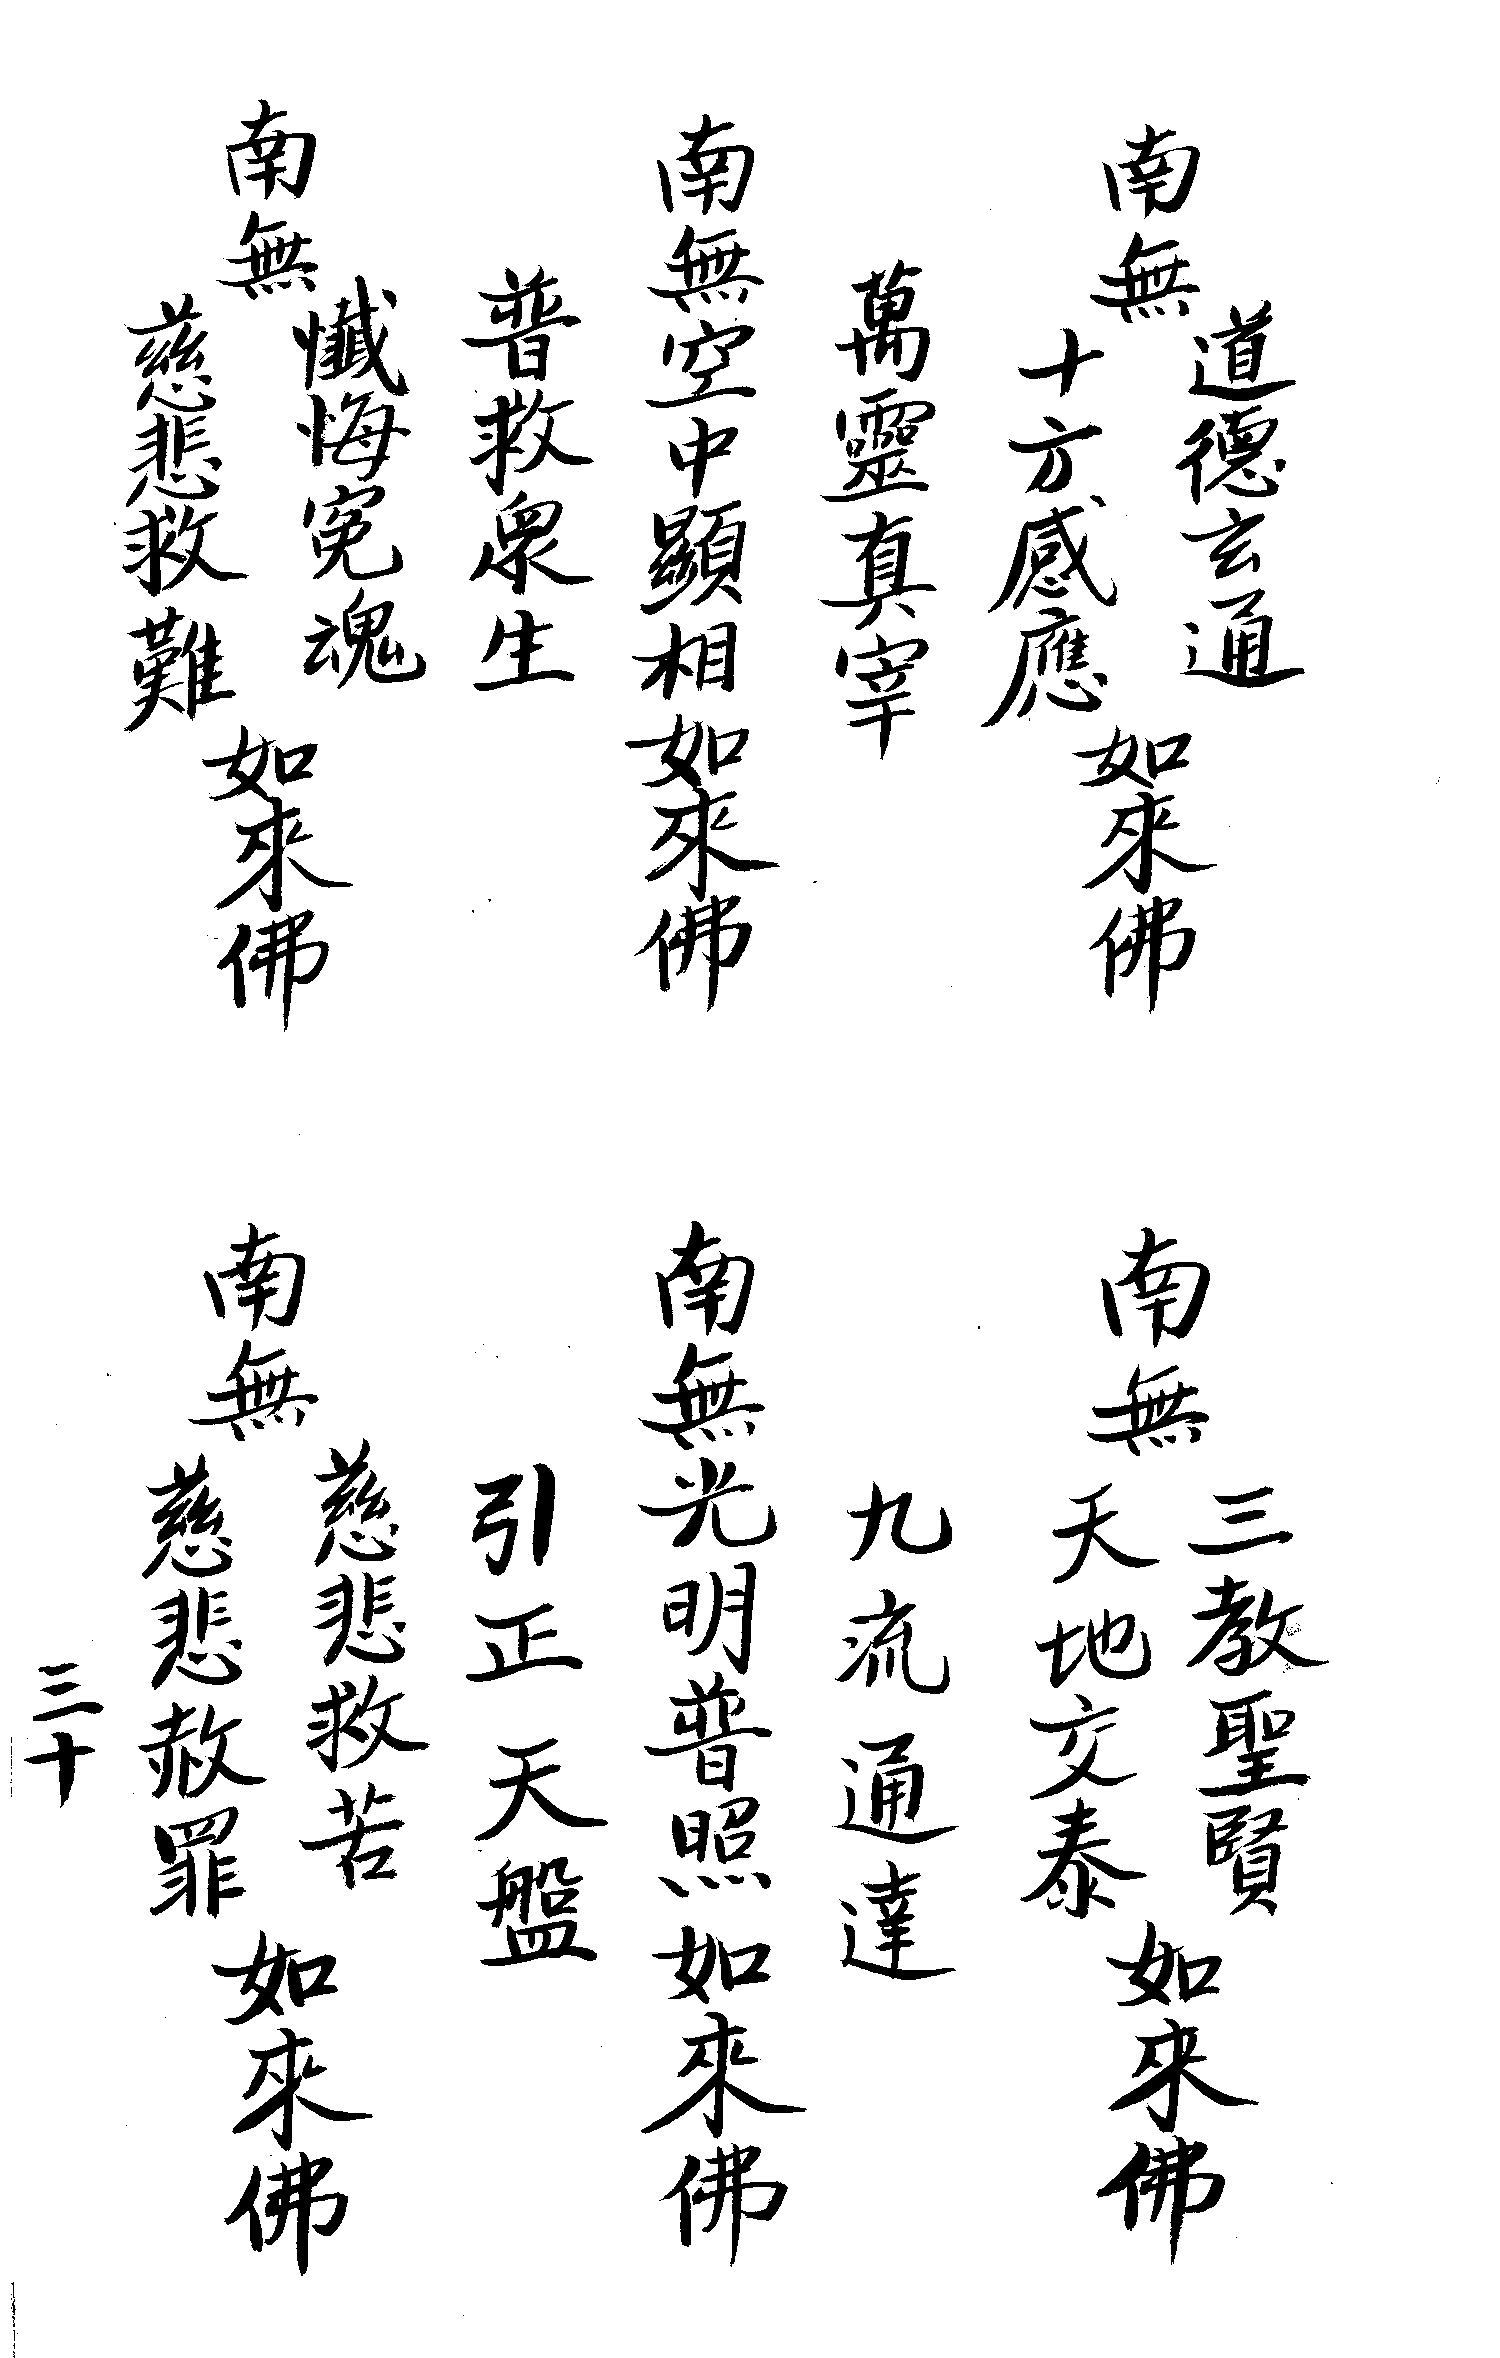 南無
道德玄通
十方感應
如來佛
萬靈真宰
南無空中顯相如來佛
普救眾生
南無
懺悔冤魂
慈悲救難
如來佛
南無
三教聖賢
天地交泰
如來佛
九流通達
南無光明普照如來佛
引正天盤
南無
慈悲救苦
慈悲赦罪
如來佛
三十